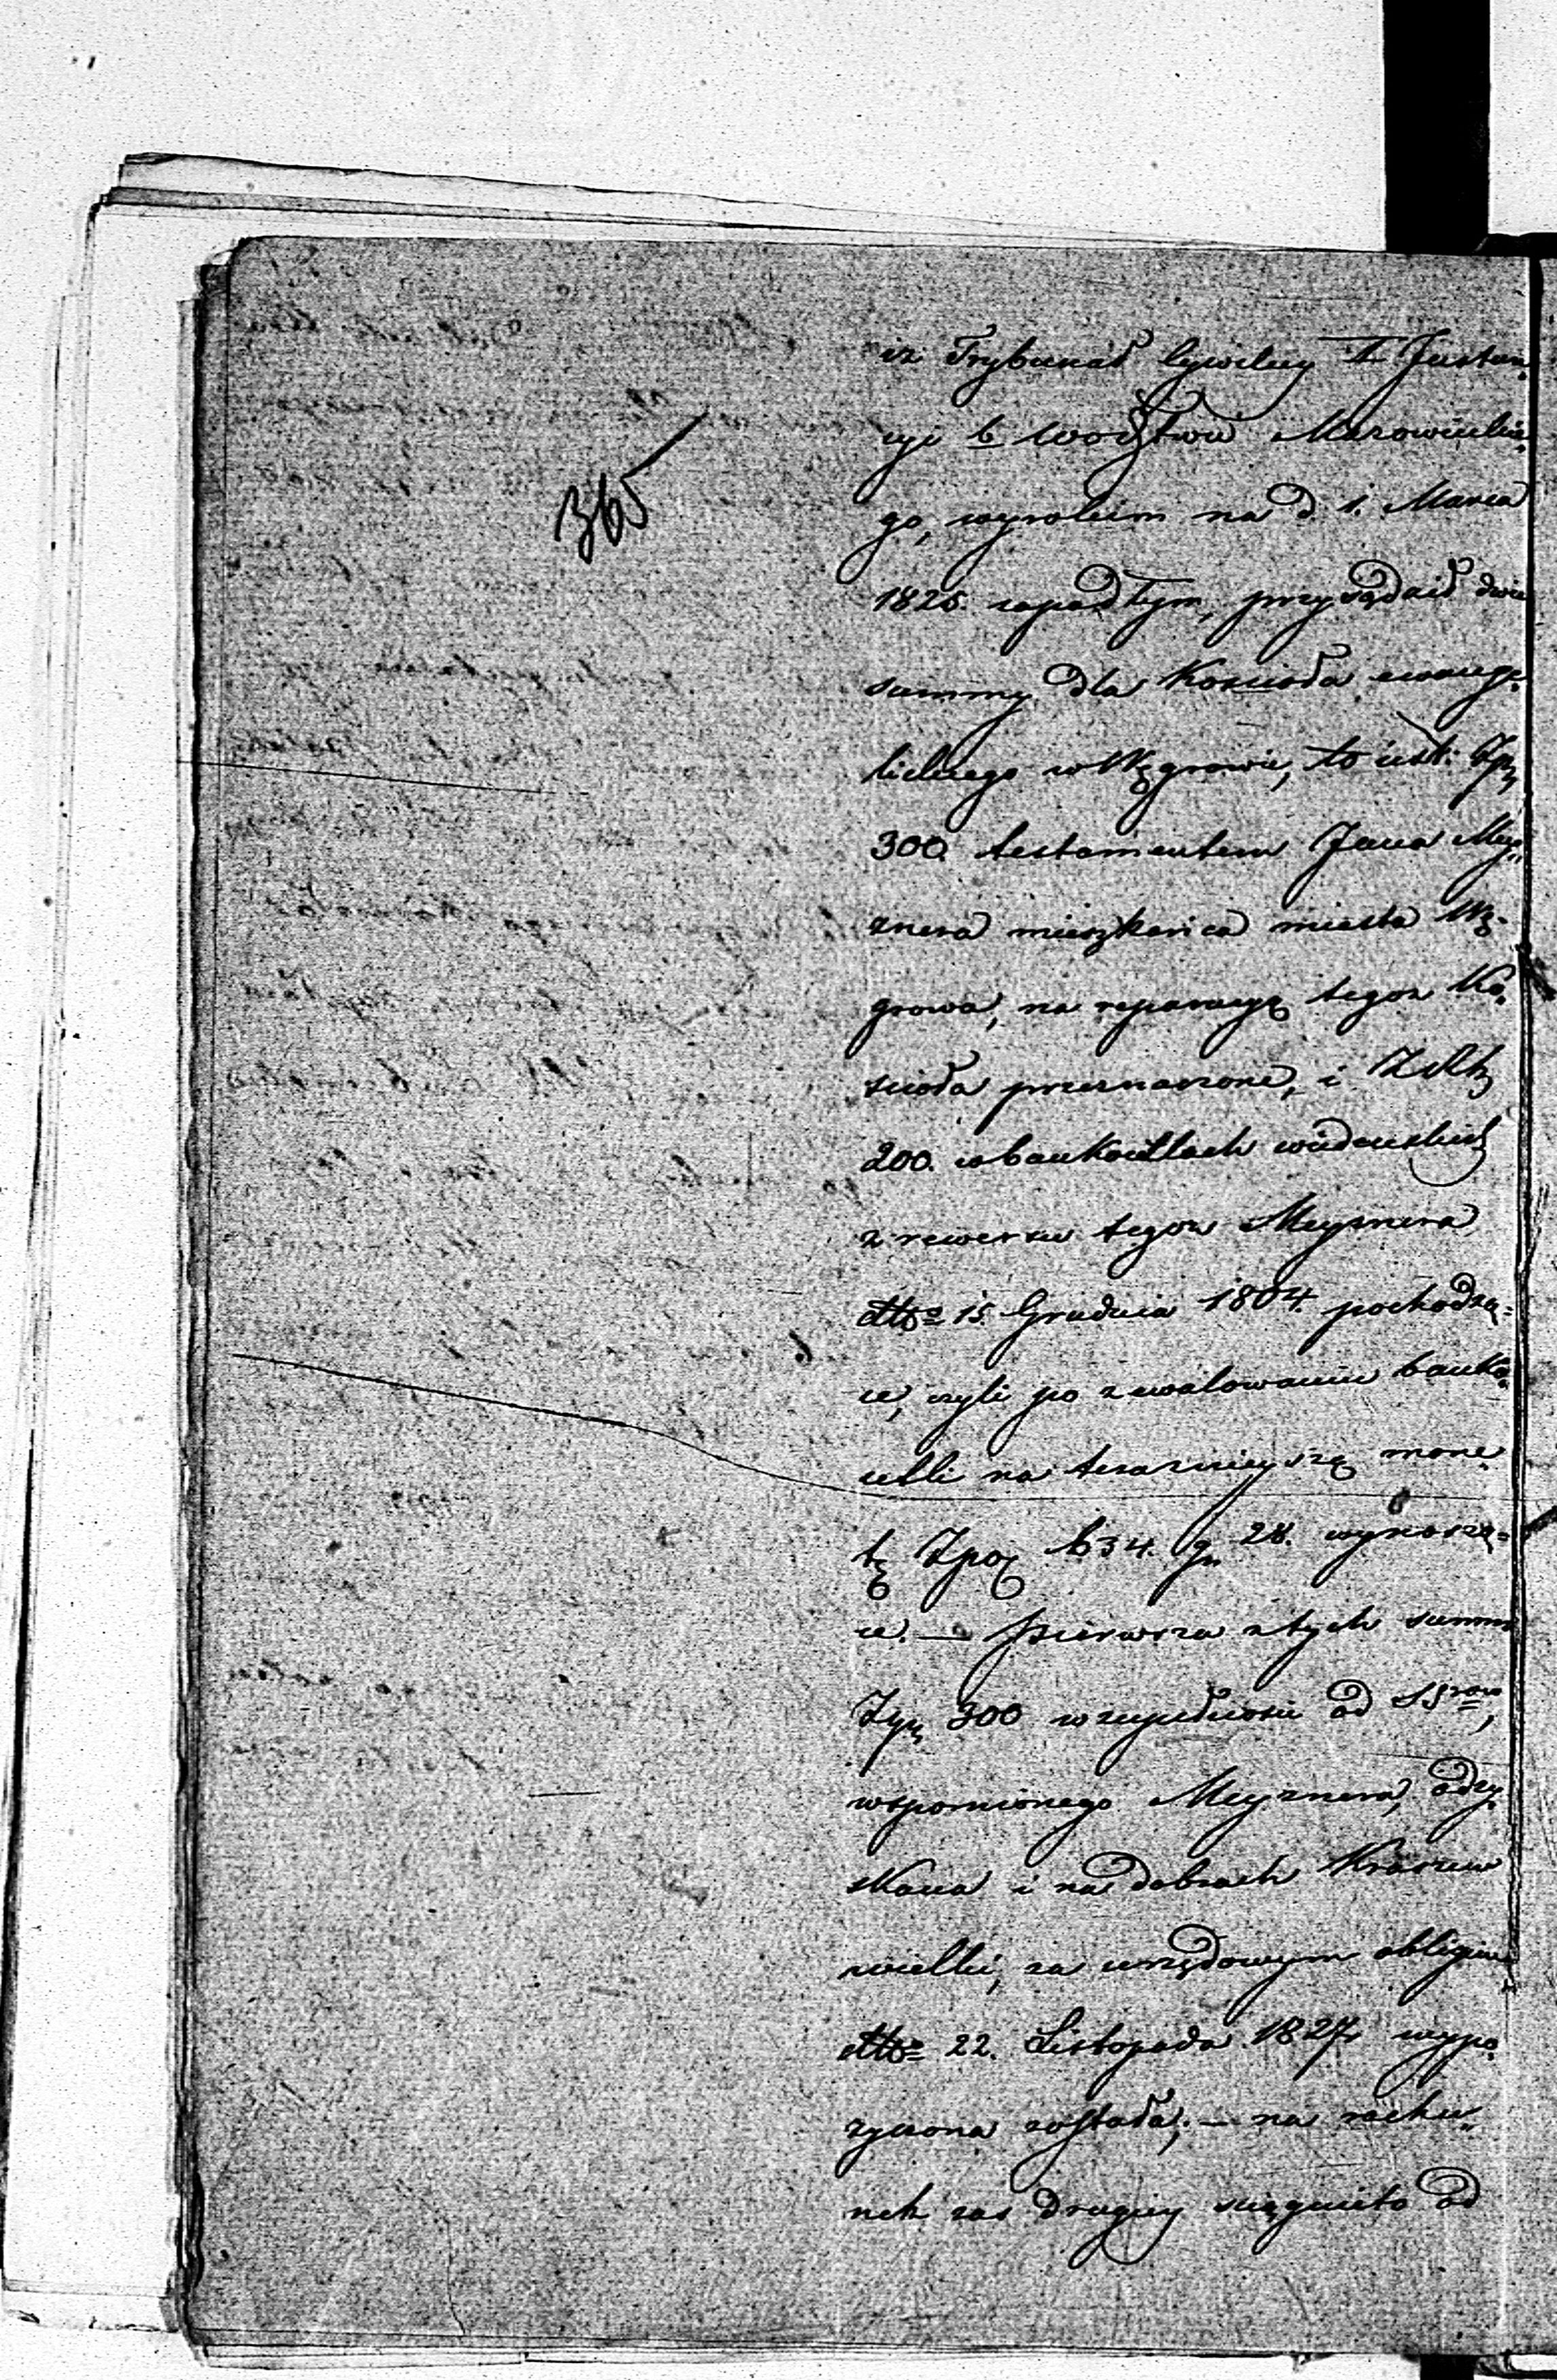 365
iż Trybunał Cywilny I Instan-
cyi b. Wodztwa Mazowieckie-
go, wyrokiem na d. 1. Marca
1825. zapadłym, przysądził dwie
summy dla Koscioła ewange-
lickiego w Węgrowie, to iest: Zp.
300. testamentem Jana Mey-
znera mieszkańca miasta Wę-
growa, na reparacyą tegoż Ko-
scioła przeznaczone, i ZRh
200. w bankocetlach wiedeńskich
z rewersu tegoż Meyznera
dtto 15. Grudnia 1804. pochodzą-
ce, czyli po zwalowaniu banko-
cetli na teraznieyszą mone-
tę Zpol 634. gr. 28. wynoszą-
ce. — Pierwsza z tych summ
Zp. 300 w zupełnosci od SSrów,
wspomionego Meyznera, odzy-
skana i na dobrach Kraszew
wielki, za urzędowym obligiem
dtto 22. Listopada 1827 wypo-
zyczona została; — na rachu-
nek zas drugiey sciągnięto od